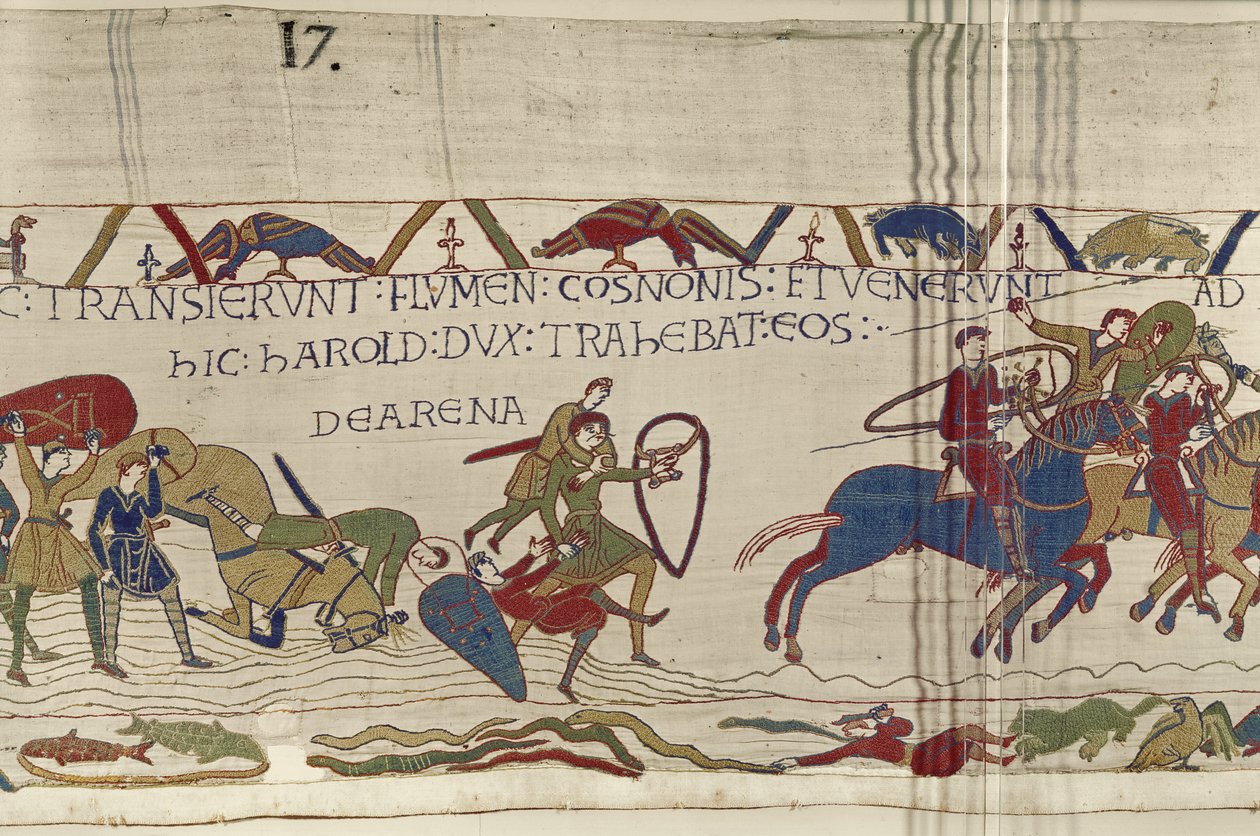 17.
C: TRANSIERVNT: FLVMEN: COSNONIS: ET VENERVNT AD
hIC: hAROLD: DVX: TRAhEBAT: EOS:
DE ARENA